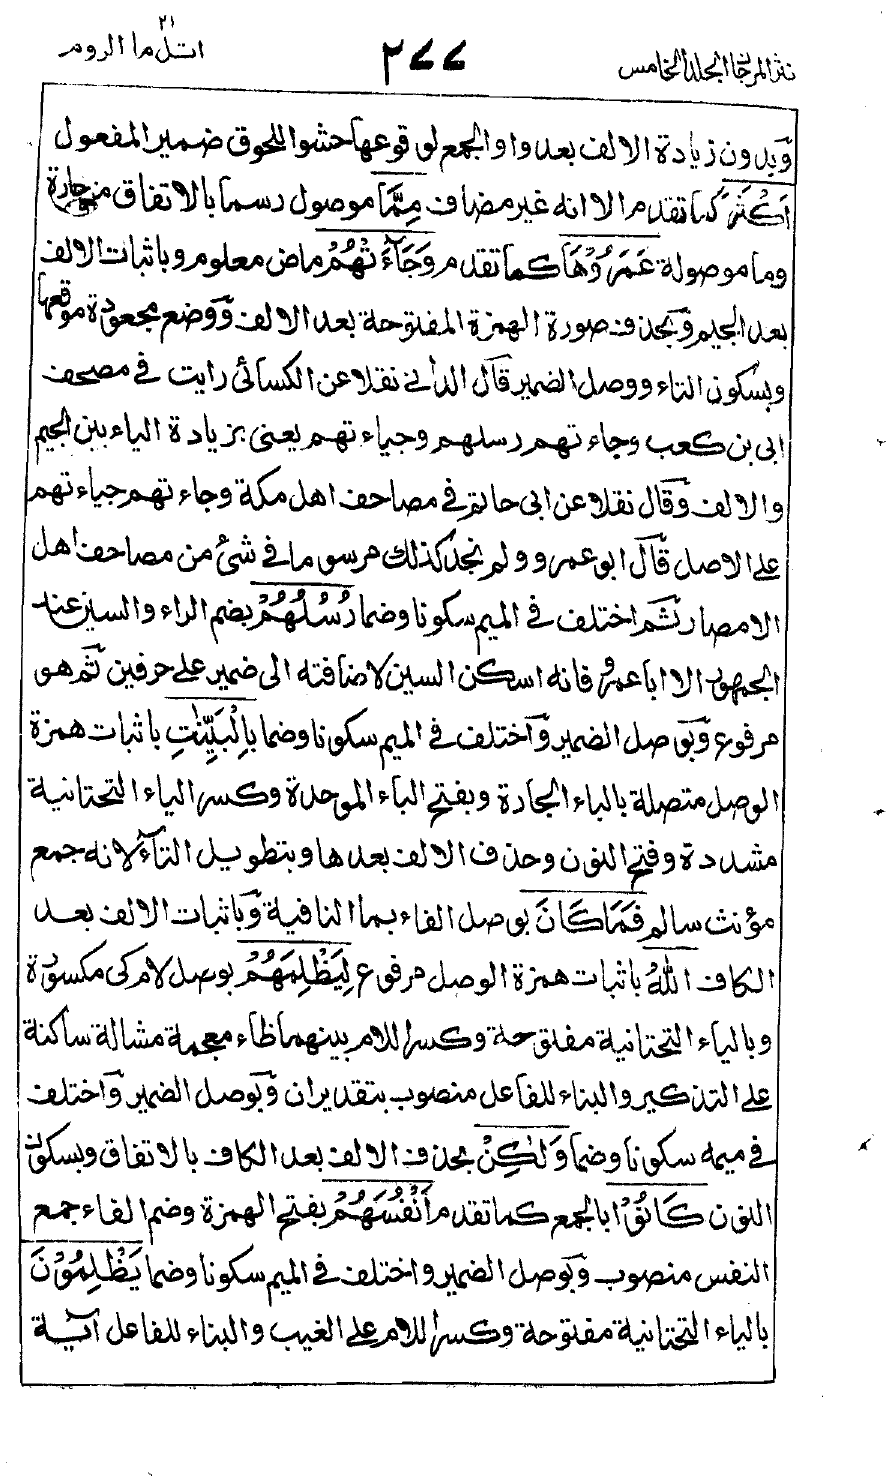 نثر المرجان المجلد الخامس
٢٧٧
٢١
اتل ما الروم
وبدون زيادة الالف بعد واو الجمع لوقوعها حشوا للحوق ضمير المفعول
اَكْثَرَ كما تقدم الا انه غير مضاف مِمَّا موصول رسما بالاتفاق من جارة
وما موصولة عَمَرُوْهَا كما تقدم وَجَآءَتْهُمْ ماض معلوم وباثبات الالف
بعد الجيم وبحذف صورة الهمزة المفتوحة بعد الالف ووضع مجعودة موقعها
وبسكون التاء ووصل الضمير قال الداني نقلا عن الكسائي رايت في مصحف
ابى بن كعب وجاءتهم رسلهم وجياءتهم يعنى بزيادة الياء بين الجيم
والالف وقال نقلا عن ابى حاتم في مصاحف اهل مكة وجاءتهم جياءتهم
على الاصل قال ابو عمرو ولم نجد كذلك مرسوما في شئ من مصاحف اهل
الامصار ثم اختلف في الميم سكونا وضما رُسُلُهُمْ بضم الراء والسين عند
الجمهور الا ابا عمرو فانه اسكن السين لاضافته الى ضمير على حرفين ثم هو
مرفوع وبوصل الضمير واختلف في الميم سكونا وضما بِالْبَيِّنٰتِ باثبات همزة
الوصل متصلة بالباء الجارة وبفتح الباء الموحدة وكسر الياء التحتانية
مشددة وفتح النون وحذف الالف بعدها وبتطويل التاء لانه جمع
مؤنث سالم فَمَا كَانَ بوصل الفاء بما النافية وباثبات الالف بعد
الكاف اللّٰهُ باثبات همزة الوصل مرفوع لِيَظْلِمَهُمْ بوصل لام كى مكسورة
وبالياء التحتانية مفتوحة وكسر اللام بينهما ظاء معجمة مشالة ساكنة
على التذكير والبناء للفاعل منصوب بتقدير ان وبوصل الضمير واختلف
في ميمه سكونا وضما وَلٰكِنْ بحذف الالف بعد الكاف بالاتفاق وبسكون
النون كَانُوْا بالجمع كما تقدم اَنْفُسَهُمْ بفتح الهمزة وضم الفاء جمع
النفس منصوب وبوصل الضمير واختلف في الميم سكونا وضما يَظْلِمُوْنَ
بالياء التحتانية مفتوحة وكسر اللام على الغيب والبناء للفاعل آية